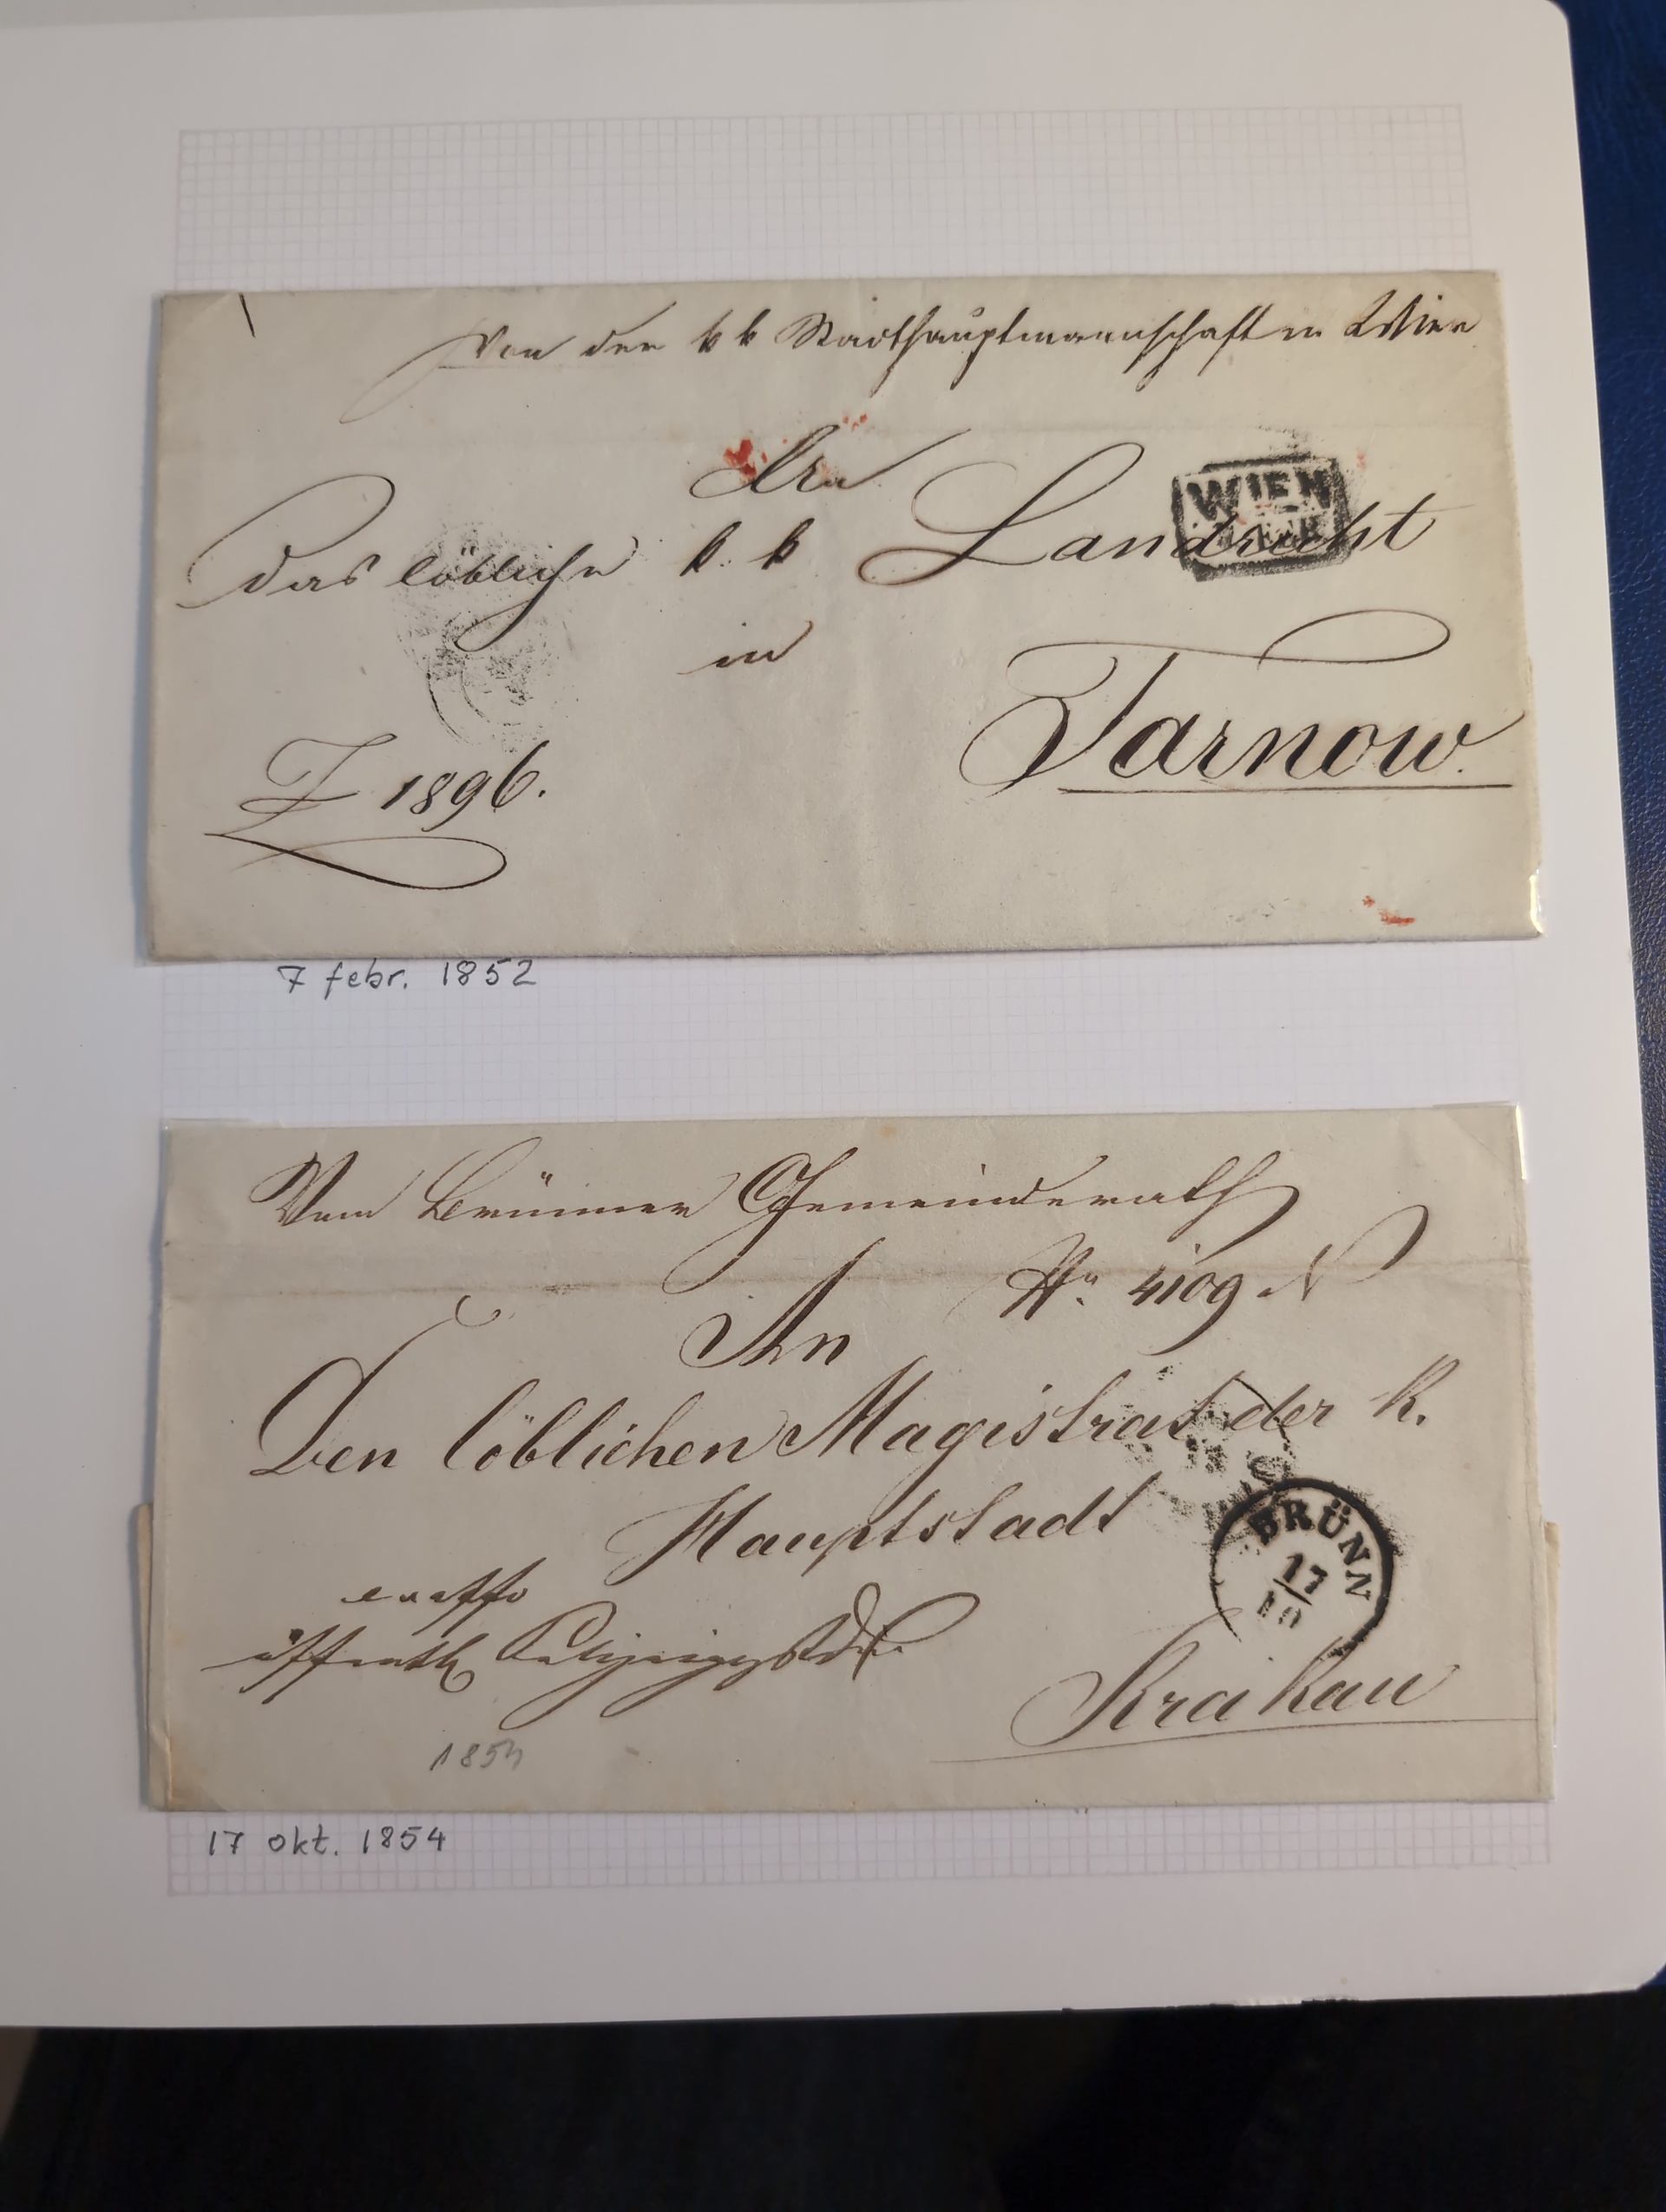 Von der k k Stadthauptmannschaft in Wien
An
das löbliche k. k Landrecht
WIEN
in
Tarnow.
Z 1896.
7 febr. 1852
Vom Brünner Gemeinderath
Nr. 4109
An
Den löblichen Magistrat der k.
Hauptstadt
BRÜNN
17
10
ex offo
Krakau
1854
17 okt. 1854